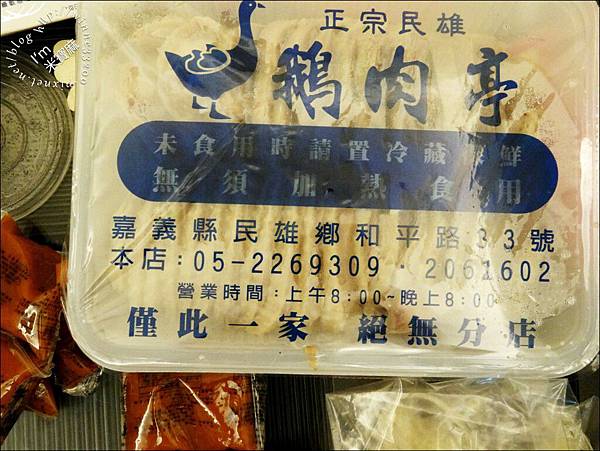 正宗民雄
鵝肉亭
未食用時請置冷藏保鮮
無須加熱食用
嘉義縣民雄鄉和平路33號
本店:05-2269309·2061602
營業時間:上午8:00~晚上8:00
僅此一家 絕無分店
I'm
米寶麻